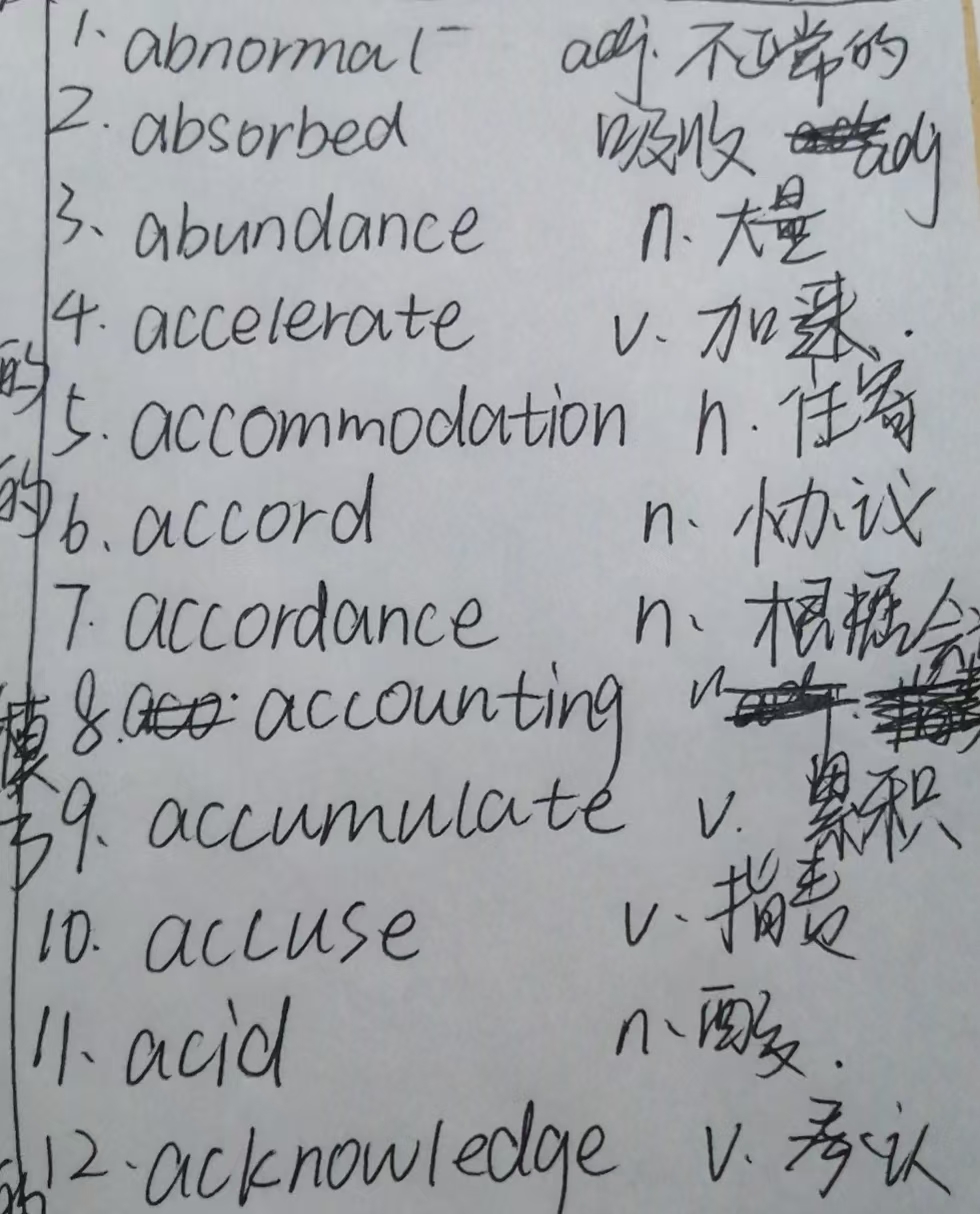 1. abnormal adj. 不正常的
2. absorbed 吸收 adj
3. abundance n. 大量
4. accelerate v. 加速.
5. accommodation n. 住宿
6. accord n. 协议
7. accordance n. 根据
8. accounting n 会
9. accumulate v. 累积
10. accuse v. 指责
11. acid n. 酸.
12. acknowledge v. 承认
的
的
模
的